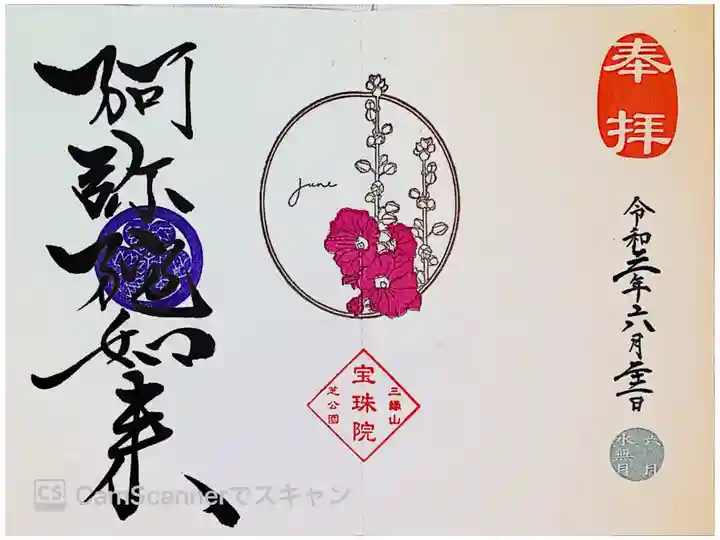 奉拝
令和三年六月
六月
水無月
June
三縁山
宝珠院
芝公園
阿弥陀如来
CS CamScannerでスキャン